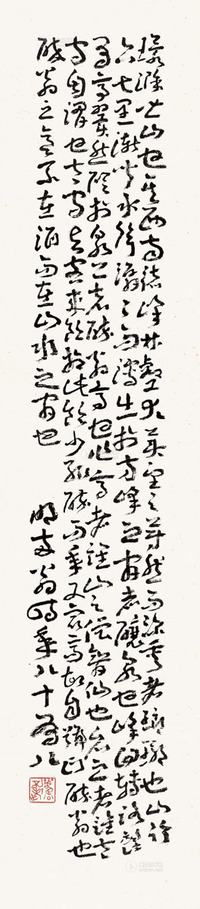 環滁皆山也其西南諸峰林壑尤美望之蔚然而深秀者瑯琊也山行
六七里漸聞水聲潺潺而瀉出於兩峰之間者釀泉也峰回路轉
有亭翼然臨於泉上者醉翁亭也作亭者誰山之僧智仙也名之者誰太
守自謂也太守與客來飲於此飲少輒醉而年又最高故自號曰醉翁也
醉翁之意不在酒而在山水之間也
翁時年八十